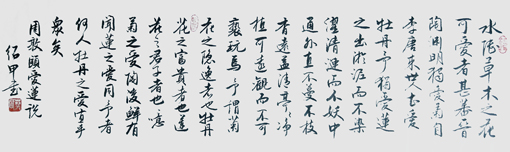 水陸草木之花
可愛者甚蕃晉
陶淵明獨愛菊自
李唐來世人甚愛
牡丹予獨愛蓮
之出淤泥而不染
濯清漣而不妖中
通外直不蔓不枝
香遠益清亭々淨
植可遠觀而不可
褻玩焉予謂菊
花之隱逸者也牡丹
花之富貴者也蓮
花之君子者也噫
菊之愛陶後鮮有
聞蓮之愛同予者
何人牡丹之愛宜乎
眾矣
周敦頤愛蓮說
紹甲書